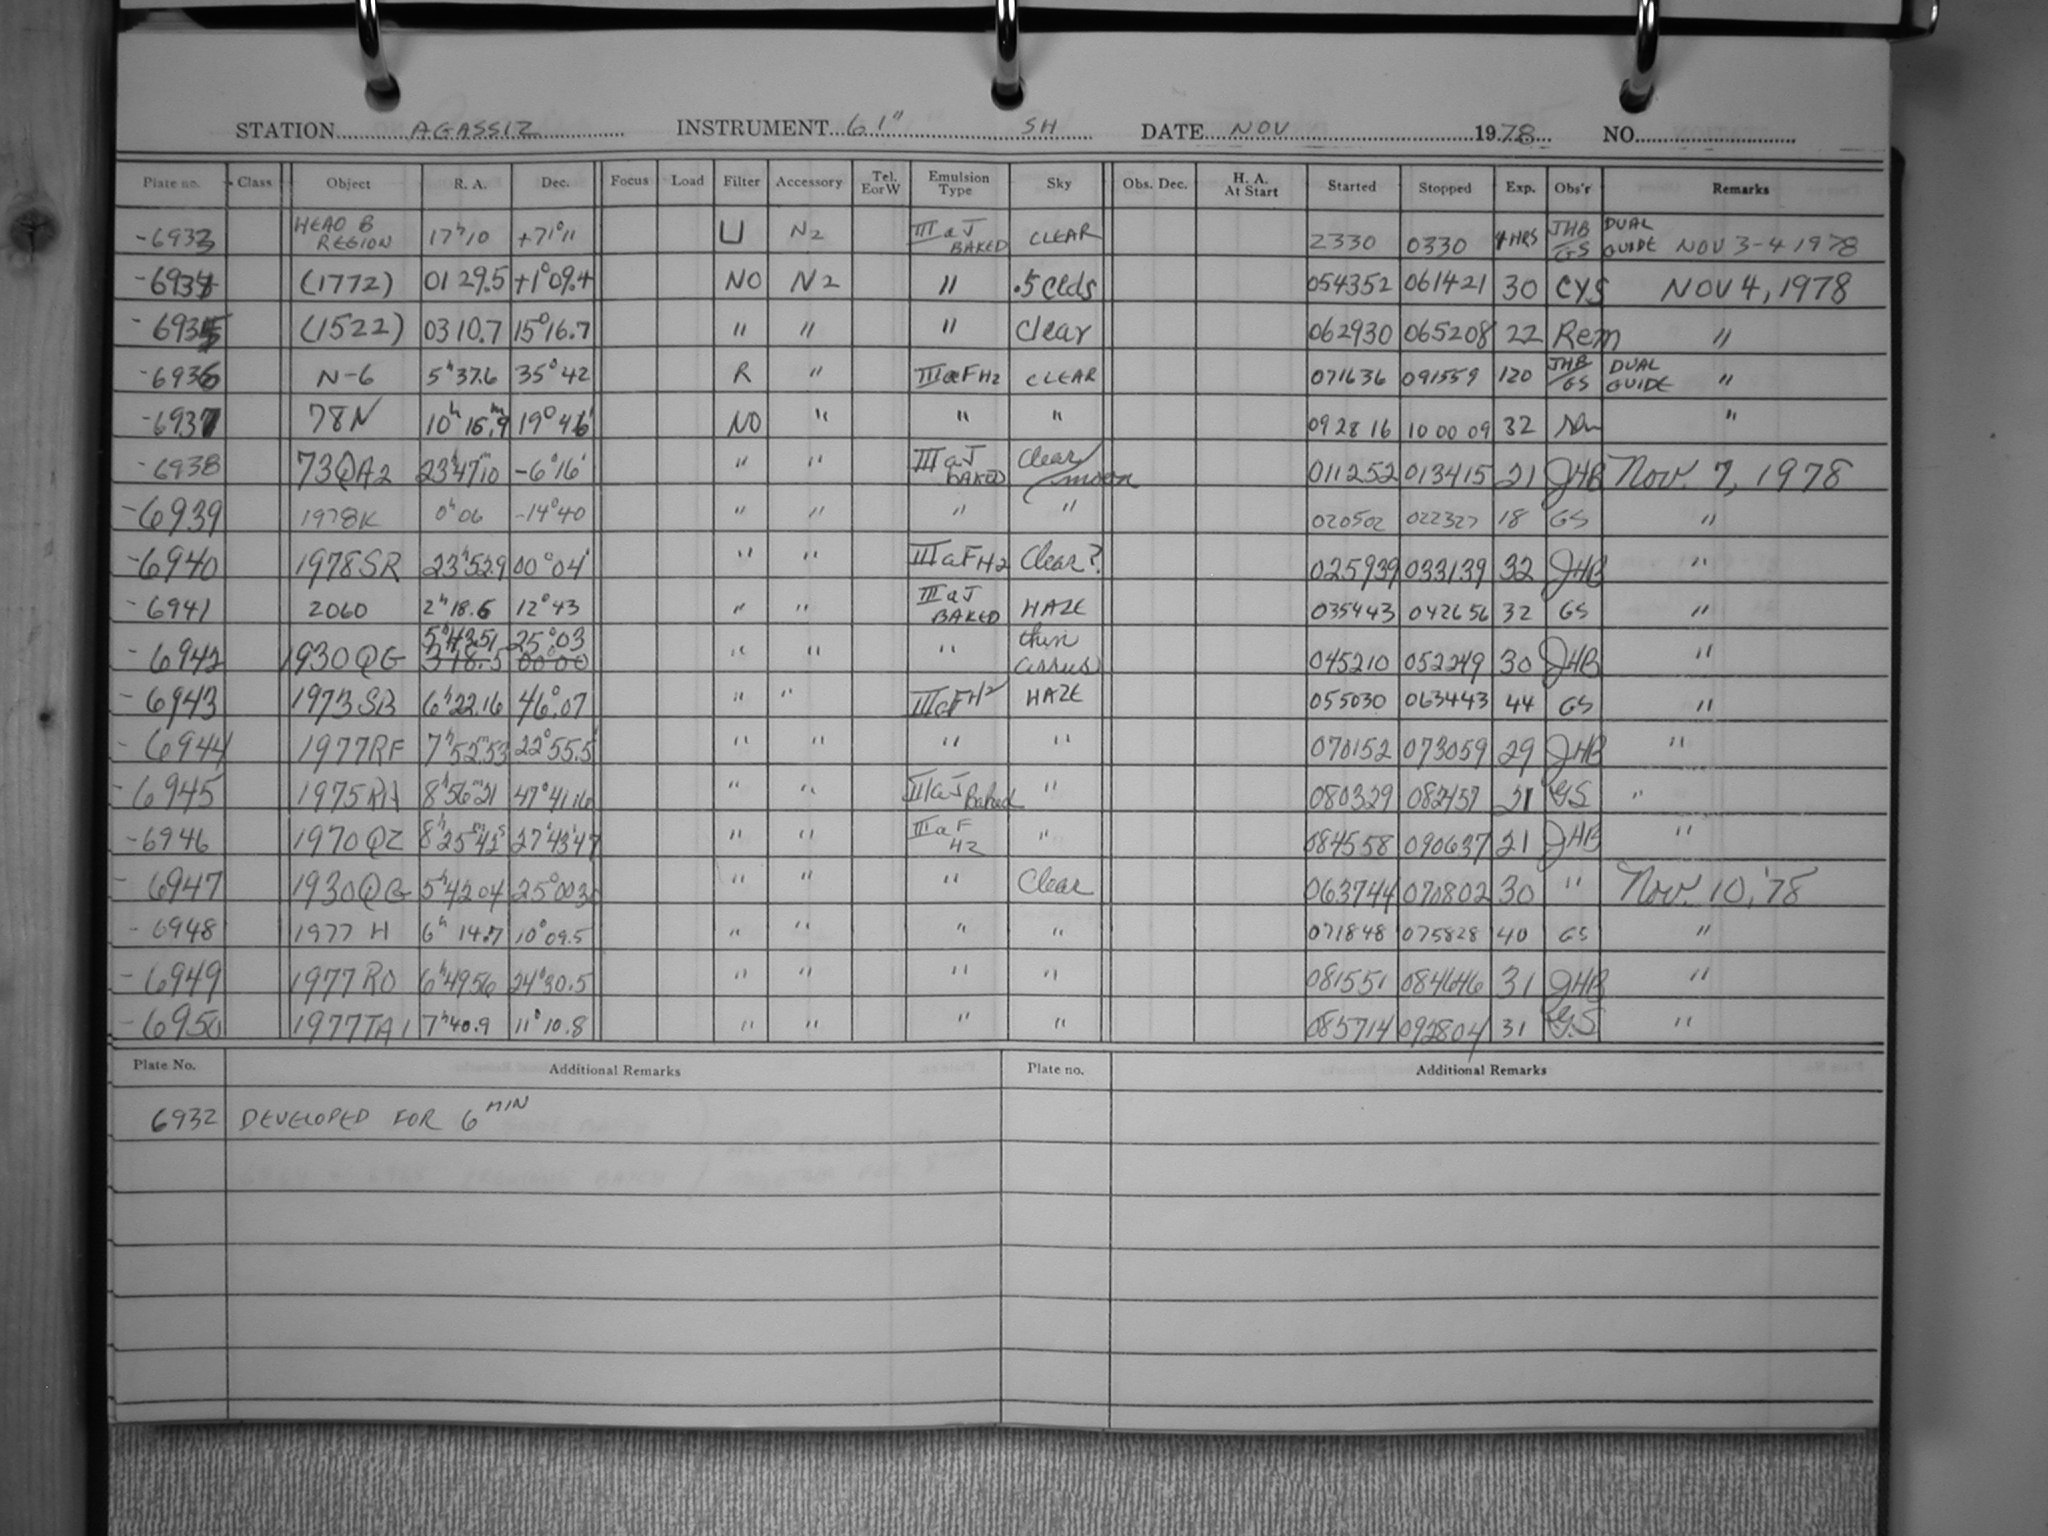 STATION AGASSIZ INSTRUMENT 61" SH DATE NOV 1978 NO.
Plate no. Class Object R. A. Dec. Focus Load Filter Accessory Tel. E or W Emulsion Type Sky Obs. Dec. H. A. At Start Started Stopped Exp. Obs'r Remarks
-6933 HEAD B REGION 17h10 +71°11 U N2 IIIaJ BAKED CLEAR 2330 0330 4 HRS JHB/GS DUAL GUIDE NOV 3-4 1978
-6934 (1772) 01 29.5 +1°09.4 NO N2 " .5 clds 054352 061421 30 CYS NOV 4, 1978
-6935 (1522) 03 10.7 15°16.7 " " " Clear 062930 065208 22 Rem "
-6936 N-6 5h37.6 35°42 R " IIIaFH2 CLEAR 071636 091559 120 JHB/GS DUAL GUIDE "
-6937 78N 10h 15m.9 19°46' NO " " " 092816 10 00 09 32 "
-6938 73QA2 23h47m10 -6°16' " " IIIaJ BAKED Clear/moon 011252 013415 21 JHB Nov. 7, 1978
-6939 1978K 0h06 -14°40 " " " " 020502 022327 18 GS "
-6940 1978SR 23h52.9 00°04' " " IIIaFH2 Clear? 025939 033139 32 JHB "
-6941 2060 2h18.6 12°43 " " IIIaJ BAKED HAZE 035443 042656 32 GS "
-6942 1930QG 5h43.51 25°03 3 18.5 00°00 " " " thin cirrus 045210 052249 30 JHB "
-6943 1973SB 6h22.16 46°07 " " IIIaFH2 HAZE 055030 063443 44 GS "
-6944 1977RF 7h52m53 22°55.5' " " " " 070152 073059 29 JHB "
-6945 1975RH 8h56m21 47°41.16 " " IIIaJ Baked " 080329 082457 21 GS "
-6946 1970QZ 8h25m42s 27°43'47 " " IIIaF H2 " 084558 090637 21 JHB "
-6947 1930QG 5h42 04 25°00 30 " " " Clear 063744 070802 30 " Nov. 10, '78
-6948 1977 H 6h 14.7 10°09.5 " " " " 071848 075828 40 GS "
-6949 1977RO 6h4956 24°30.5 " " " " 081551 084646 31 JHB "
-6950 1977TA1 7h40.9 11°10.8 " " " " 085714 092804 31 GS "
Plate No. Additional Remarks Plate no. Additional Remarks
6932 DEVELOPED FOR 6 MIN